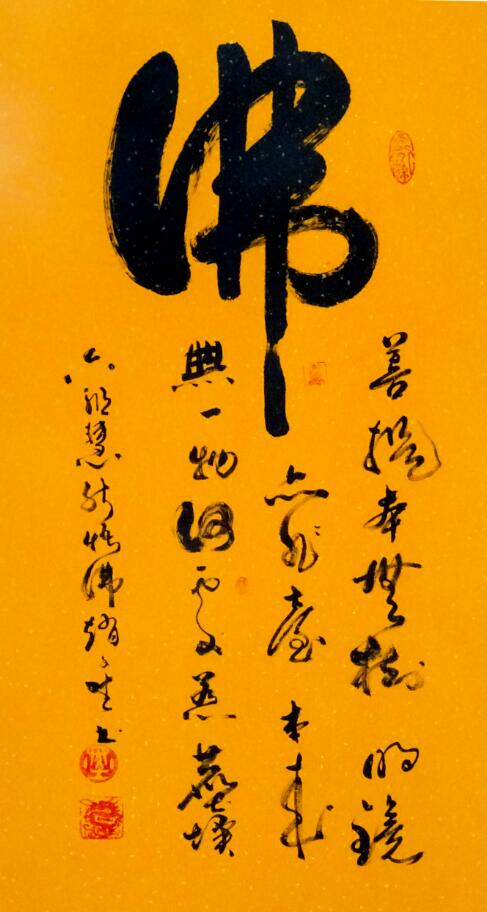 佛
菩提本無樹 明鏡
亦非臺 本來
無一物何處惹塵埃
六祖慧能悟佛 书